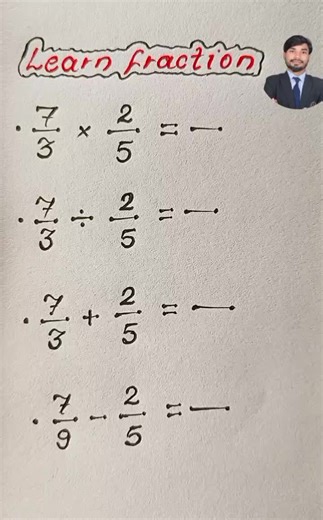 Learn fraction
· 7/3 × 2/5 = —
· 7/3 ÷ 2/5 = —
· 7/3 + 2/5 = —
· 7/9 - 2/5 = —